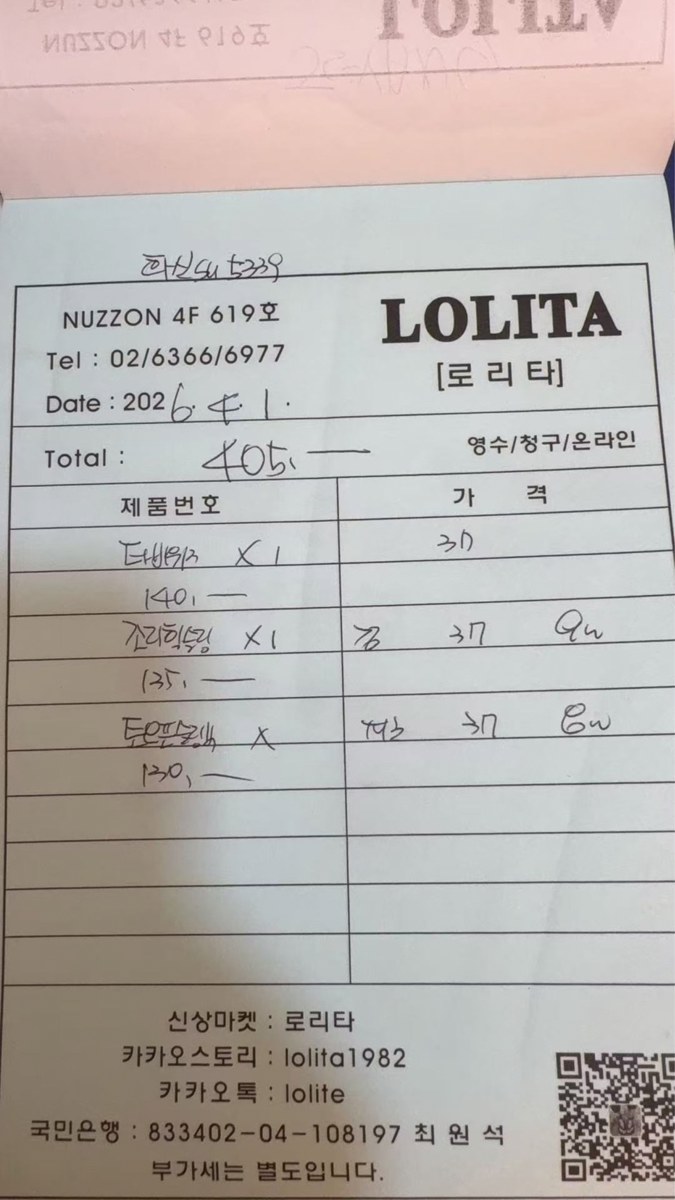 NUZZON 4F 619호
화신SU 5339
NUZZON 4F 619호
LOLITA
Tel : 02/6366/6977
[로리타]
Date : 2026. 4. 1.
Total : 405,—
영수/청구/온라인
제품번호
가 격
X 1
37
140,—
X 1
검 37
135,—
X
37
130,—
신상마켓 : 로리타
카카오스토리 : lolita1982
카카오톡 : lolite
국민은행 : 833402-04-108197 최원석
부가세는 별도입니다.